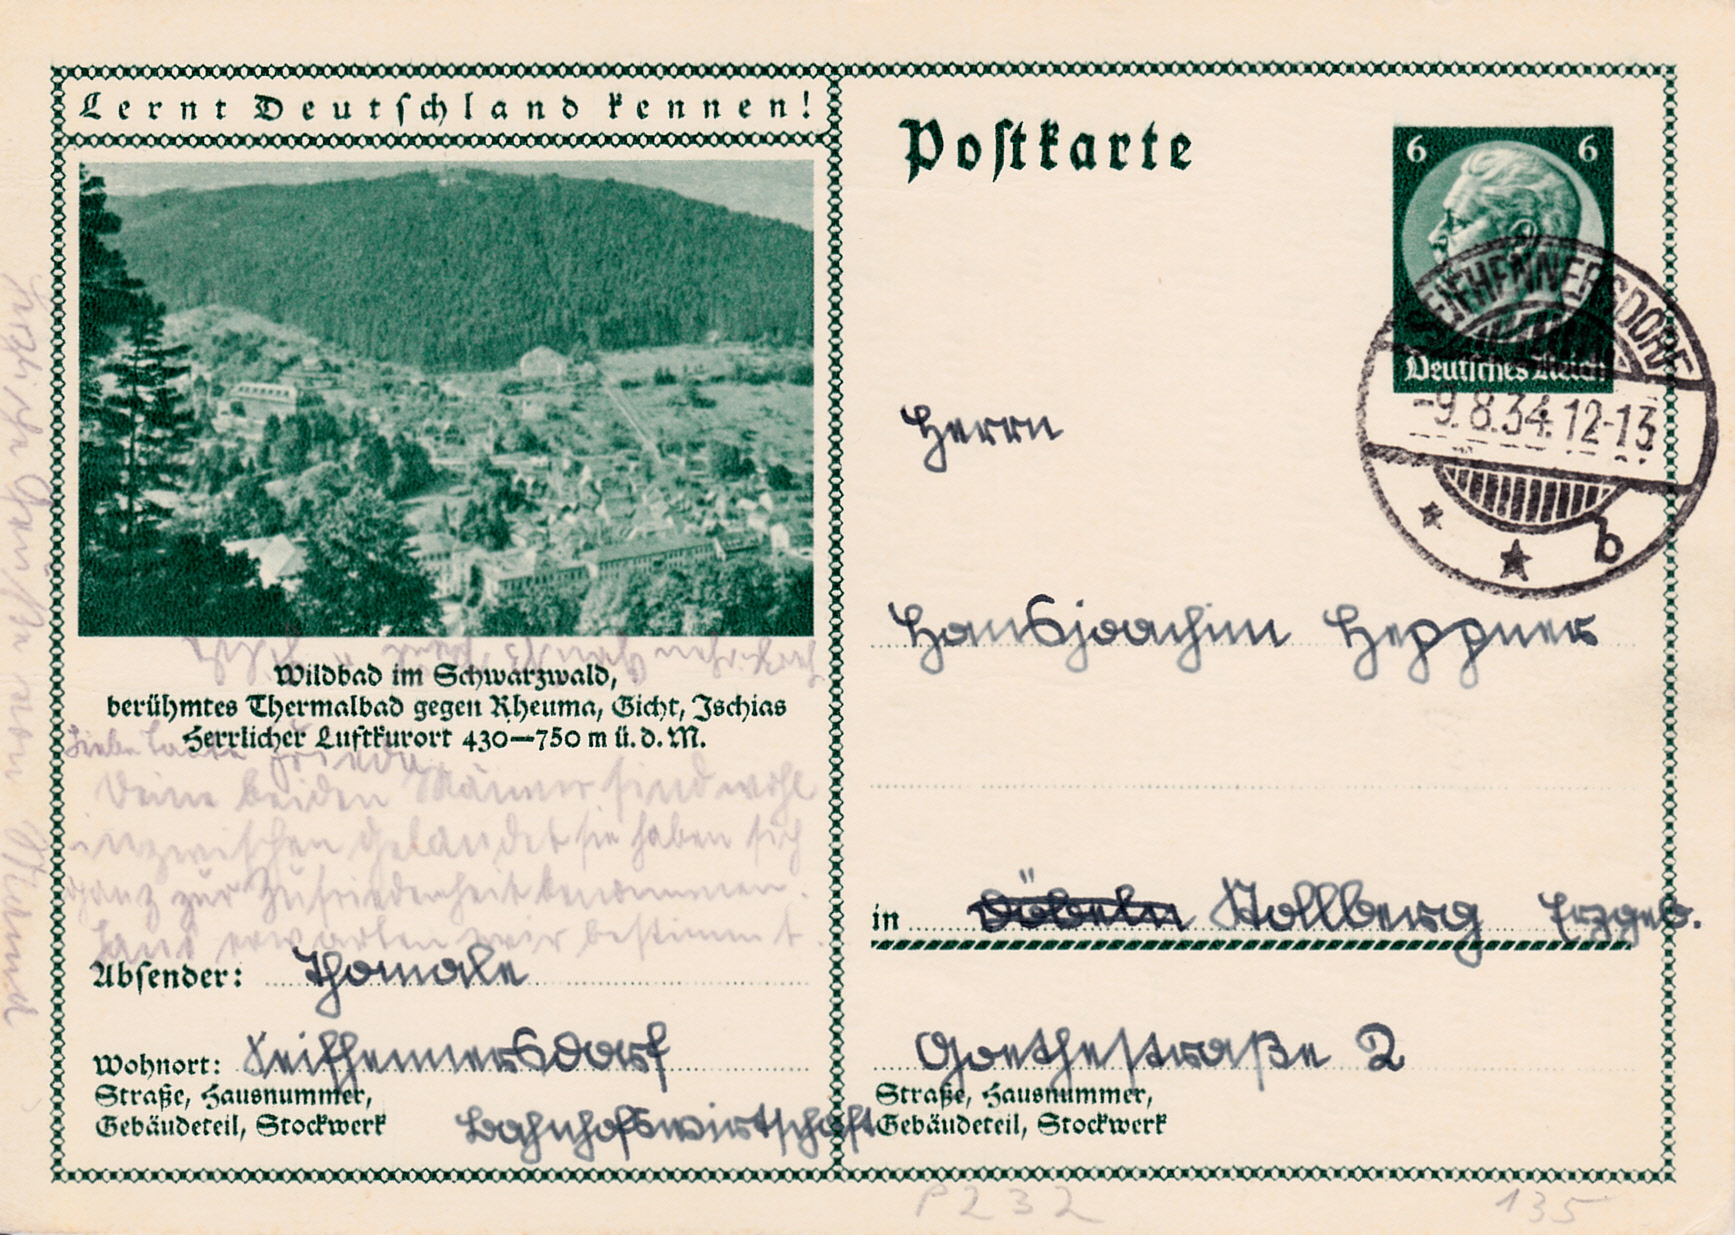 Lernt Deutschland kennen!
Wildbad im Schwarzwald,
berühmtes Thermalbad gegen Rheuma, Gicht, Ischias
Herrlicher Luftkurort 430—750 m ü. d. M.
Liebe Tante Frieda
Deine beiden Männer sind wohl
inzwischen gelandet sie haben sich
ganz zur Zufriedenheit benommen.
Hans erwarten wir bestimmt.
Absender: Thomale
Wohnort: Seifhennersdorf
Straße, Hausnummer,
Gebäudeteil, Stockwerk
Bahnhofswirtschaft
Postkarte
6 6
Deutsches Reich
SEIFHENNERSDORF
-9.8.34.12-13
b
Herrn
Hansjoachim Heppner
in Döbeln Stollberg Erzgeb.
Goethestraße 2
Straße, Hausnummer,
Gebäudeteil, Stockwerk
P232
135